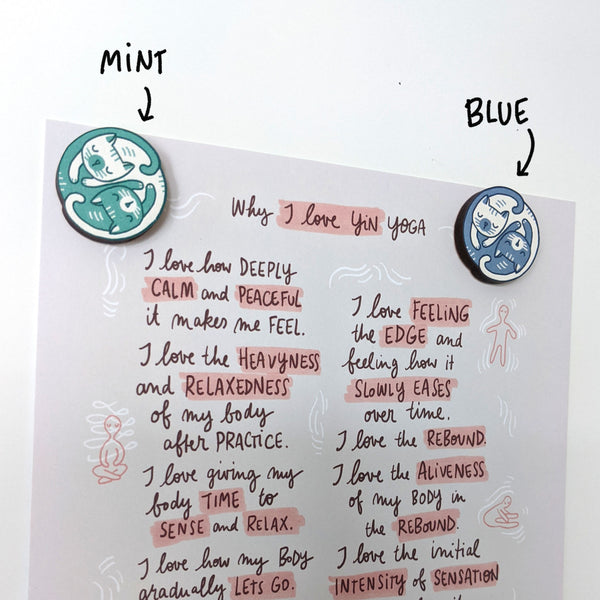 MINT
BLUE
Why I love YIN YOGA
I love how DEEPLY
CALM and PEACEFUL
it makes me FEEL.
I love the HEAVYNESS
and RELAXEDNESS
of my body
after PRACTICE.
I love giving my
body TIME to
SENSE and RELAX.
I love how my BODY
gradually LETS GO.
I love FEELING
the EDGE and
feeling how it
SLOWLY EASES
over time.
I love the REBOUND.
I love the ALIVENESS
of my BODY in
the REBOUND.
I love the initial
INTENSITY of SENSATION